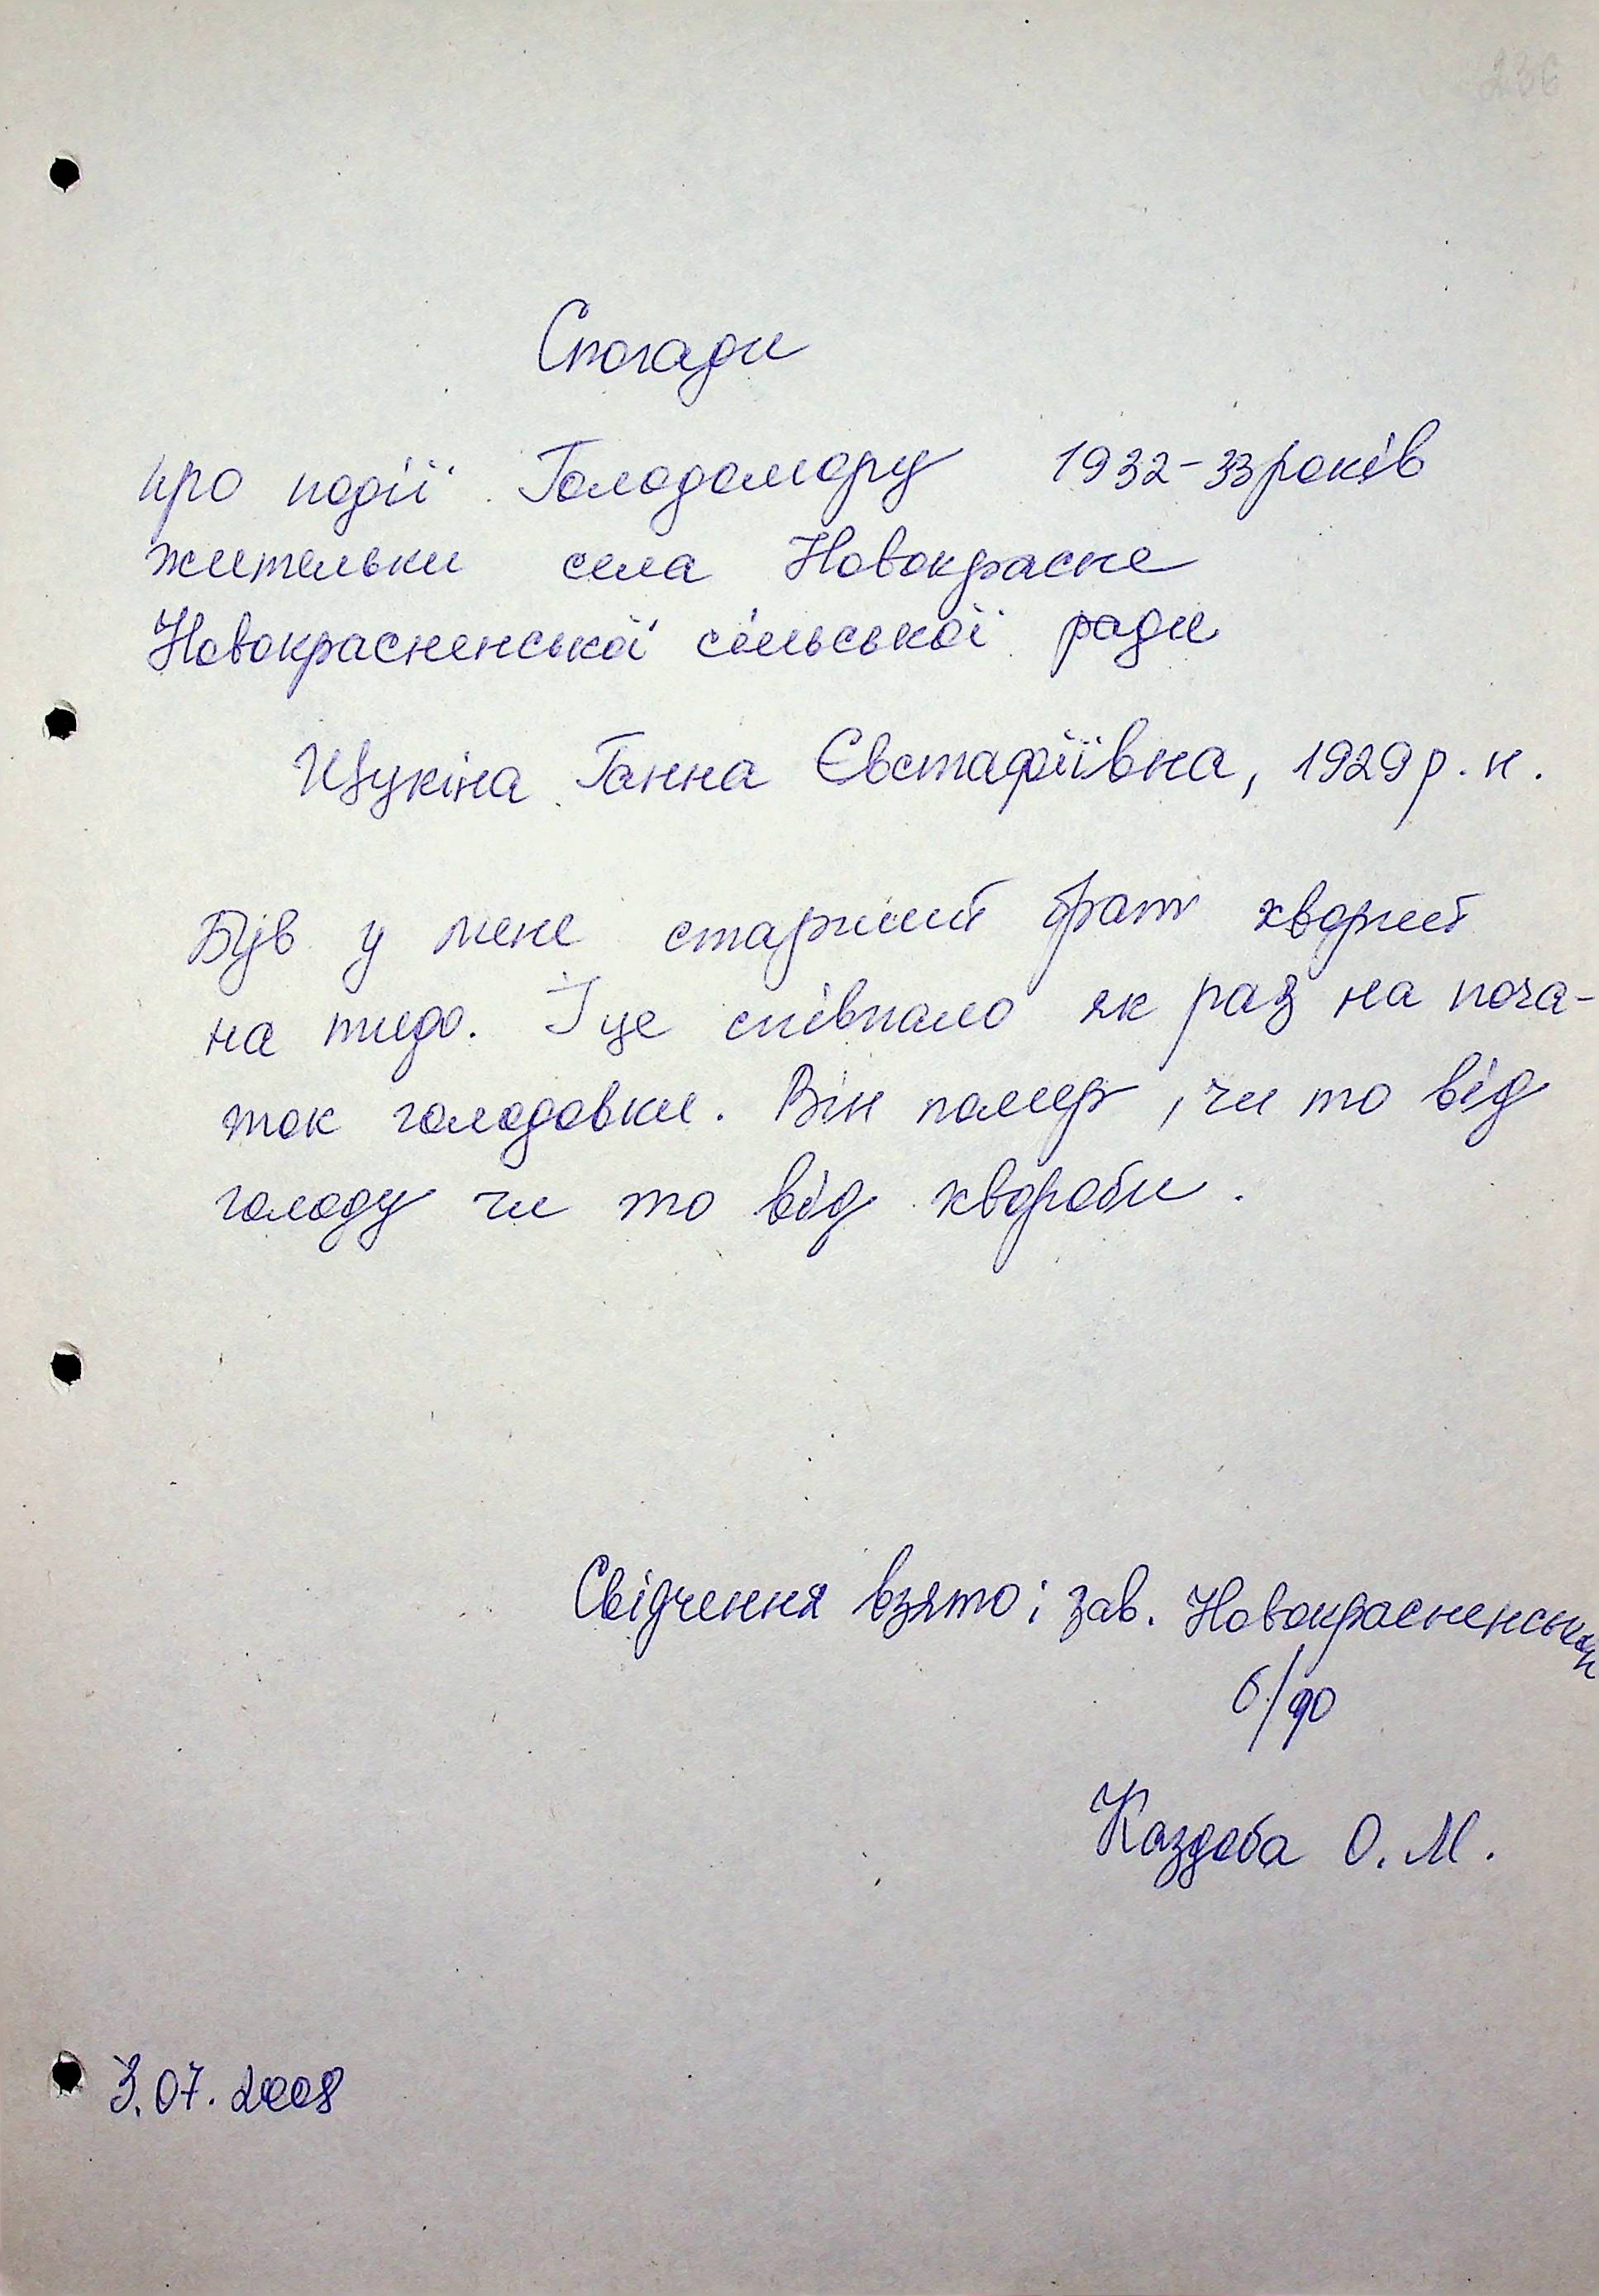 236
Спогади
про події Голодомору 1932-33 років
жительки села Новокрасне
Новокрасненської сільської ради
Щукіна Ганна Євстафіївна, 1929 р. н.
Був у мене старший брат хворий
на тиф. І це співпало як раз на поча-
ток голодовки. Він помер, чи то від
голоду чи то від хвороби.
Свідчення взято: зав. Новокрасненською
б/ф
Каздоба О. М.
3.07.2008